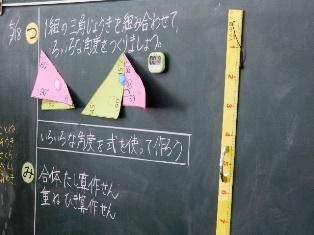 5/18 つ 1組の三角じょうぎを組み合わせて、
いろいろな角度をつくりましょう。
いろいろな角度を式を使って作ろう
み
合体たし算作せん
重ねひき算作せん
1
2
3
4
5
6
7